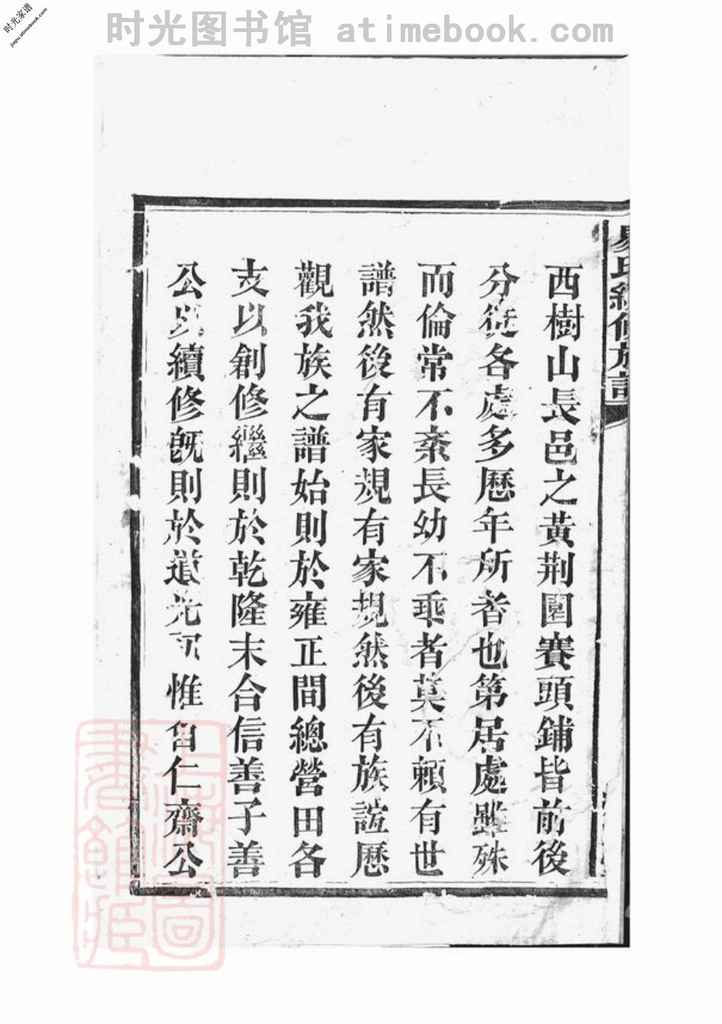 时光图书馆 atimebook.com
时光家谱
jiapu.atimebook.com
易氏續修族譜
西樹山長邑之黃荆園賽頭鋪皆前後
分徙各處多歷年所者也第居處雖殊
而倫常不紊長幼不乖者莫不賴有世
譜然後有家規有家規然後有族誼歷
觀我族之譜始則於雍正間總營田各
支以創修繼則於乾隆末合信善子善
公以續修旣則於道光初惟自仁齋公
上海圖書館藏